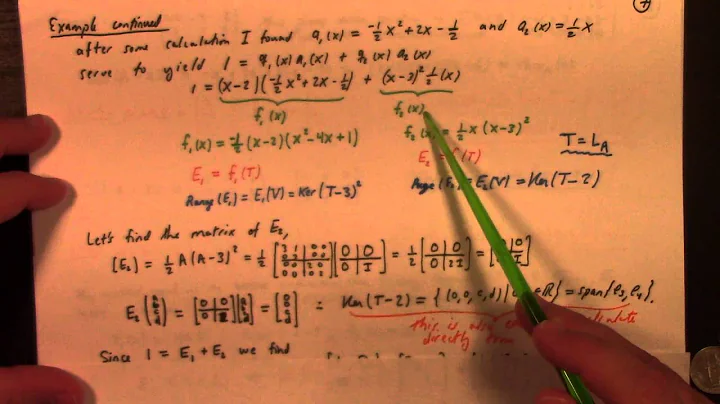 Example continued
after some calculation I found a₁(x) = -½x² + 2x - ½ and a₂(x) = ½x
serve to yield 1 = q₁(x) a₁(x) + q₂(x) a₂(x)
1 = (x-2)(-½x² + 2x - ½) + (x-3)² ½(x)
f₁(x)
f₂(x)
f₁(x) = -½(x-2)(x²-4x+1)
f₂(x) = ½x(x-3)²
T = L_A
E₁ = f₁(T)
E₂ = f(T)
Range(E₁) = E₁(V) = Ker(T-3)²
= E₂(V) = Ker(T-2)
Let's find the matrix of E₂,
[E₂] = ½A(A-3)² = ½ [3 1 | 0 0] [0 | 0] = ½ [0 | 0] = [0 | 0]
[0 | I] [0 | 2I]
E₂ [a b c d] = [0 | 0] [a b c d] = [0 0 c d] ∴ Ker(T-2) = { (0,0,c,d) | ∈ ℝ } = span{e₃,e₄}.
this is also calculate
directly
Since 1 = E₁ + E₂ we find